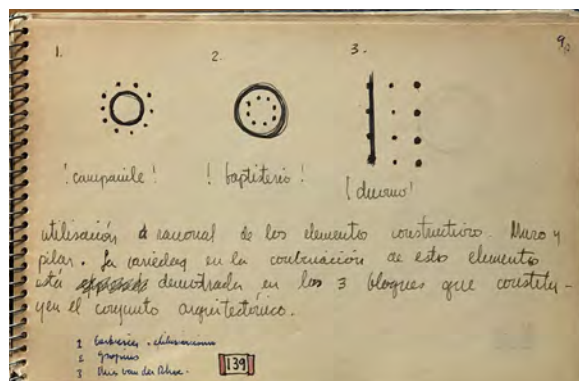 1. 2. 3. 9
! campanile ! ! baptisterio ! ! duomo !
utilisación racional de los elementos constructivos. Muro y
pilar. La variedad en la combinación de estos elementos
está demostrada en los 3 bloques que constitu-
yen el conjunto arquitectónico.
1
2 Gropius
3 Mies van der Rohe.
139